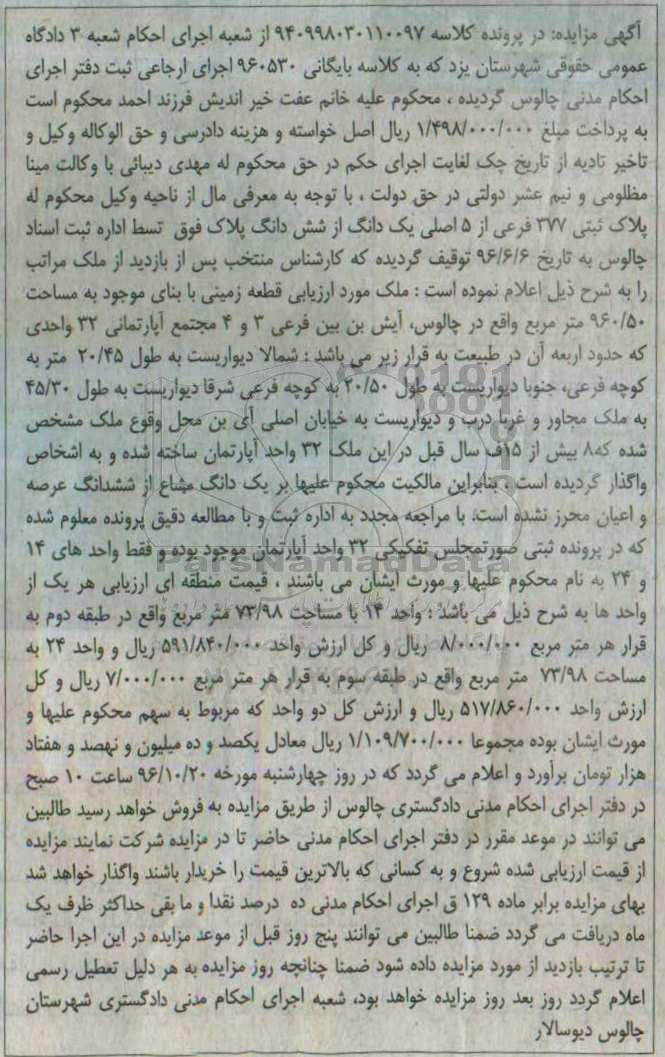 آگهی مزایده: در پرونده کلاسه ۹۴۰۹۹۸۰۳۰۱۱۰۰۹۷ از شعبه اجرای احکام شعبه ۳ دادگاه
عمومی حقوقی شهرستان یزد که به کلاسه بایگانی ۹۶۰۵۳۰ اجرای ارجاعی ثبت دفتر اجرای
احکام مدنی چالوس گردیده ، محکوم علیه خانم عفت خیر اندیش فرزند احمد محکوم است
به پرداخت مبلغ ۱/۴۹۸/۰۰۰/۰۰۰ ریال اصل خواسته و هزینه دادرسی و حق الوکاله وکیل و
تاخیر تادیه از تاریخ چک لغایت اجرای حکم در حق محکوم له مهدی دیبائی با وکالت مینا
مظلومی و نیم عشر دولتی در حق دولت ، با توجه به معرفی مال از ناحیه وکیل محکوم له
پلاک ثبتی ۳۷۷ فرعی از ۵ اصلی یک دانگ از شش دانگ پلاک فوق تسط اداره ثبت اسناد
چالوس به تاریخ ۹۶/۶/۶ توقیف گردیده که کارشناس منتخب پس از بازدید از ملک مراتب
را به شرح ذیل اعلام نموده است : ملک مورد ارزیابی قطعه زمینی با بنای موجود به مساحت
۹۶۰/۵۰ متر مربع واقع در چالوس، آیش بن بین فرعی ۳ و ۴ مجتمع آپارتمانی ۳۲ واحدی
که حدود اربعه آن در طبیعت به قرار زیر می باشد : شمالا دیواریست به طول ۲۰/۴۵ متر به
کوچه فرعی، جنوبا دیواریست به طول ۲۰/۵۰ به کوچه فرعی شرقا دیواریست به طول ۴۵/۳۰
به ملک مجاور و غربا درب و دیواریست به خیابان اصلی آی بن محل وقوع ملک مشخص
شده که۸ بیش از ۱۵ف سال قبل در این ملک ۳۲ واحد آپارتمان ساخته شده و به اشخاص
واگذار گردیده است ، بنابراین مالکیت محکوم علیها بر یک دانگ مشاع از ششدانگ عرصه
و اعیان محرز نشده است، با مراجعه مجدد به اداره ثبت و با مطالعه دقیق پرونده معلوم شده
که در پرونده ثبتی صورتمجلس تفکیکی ۳۲ واحد آپارتمان موجود بوده و فقط واحد های ۱۴
و ۲۴ به نام محکوم علیها و مورث ایشان می باشند ، قیمت منطقه ای ارزیابی هر یک از
واحد ها به شرح ذیل می باشد : واحد ۱۴ با مساحت ۷۳/۹۸ متر مربع واقع در طبقه دوم به
قرار هر متر مربع ۸/۰۰۰/۰۰۰ ریال و کل ارزش واحد ۵۹۱/۸۴۰/۰۰۰ ریال و واحد ۲۴ به
مساحت ۷۳/۹۸ متر مربع واقع در طبقه سوم به قرار هر متر مربع ۷/۰۰۰/۰۰۰ ریال و کل
ارزش واحد ۵۱۷/۸۶۰/۰۰۰ ریال و ارزش کل دو واحد که مربوط به سهم محکوم علیها و
مورث ایشان بوده مجموعا ۱/۱۰۹/۷۰۰/۰۰۰ ریال معادل یکصد و ده میلیون و نهصد و هفتاد
هزار تومان برآورد و اعلام می گردد که در روز چهارشنبه مورخه ۹۶/۱۰/۲۰ ساعت ۱۰ صبح
در دفتر اجرای احکام مدنی دادگستری چالوس از طریق مزایده به فروش خواهد رسید طالبین
می توانند در موعد مقرر در دفتر اجرای احکام مدنی حاضر تا در مزایده شرکت نمایند مزایده
از قیمت ارزیابی شده شروع و به کسانی که بالاترین قیمت را خریدار باشند واگذار خواهد شد
بهای مزایده برابر ماده ۱۲۹ ق اجرای احکام مدنی ده درصد نقدا و ما بقی حداکثر ظرف یک
ماه دریافت می گردد ضمنا طالبین می توانند پنج روز قبل از موعد مزایده در این اجرا حاضر
تا ترتیب بازدید از مورد مزایده داده شود ضمنا چنانچه روز مزایده به هر دلیل تعطیل رسمی
اعلام گردد روز بعد روز مزایده خواهد بود، شعبه اجرای احکام مدنی دادگستری شهرستان
چالوس دیوسالار
ParsNamadData